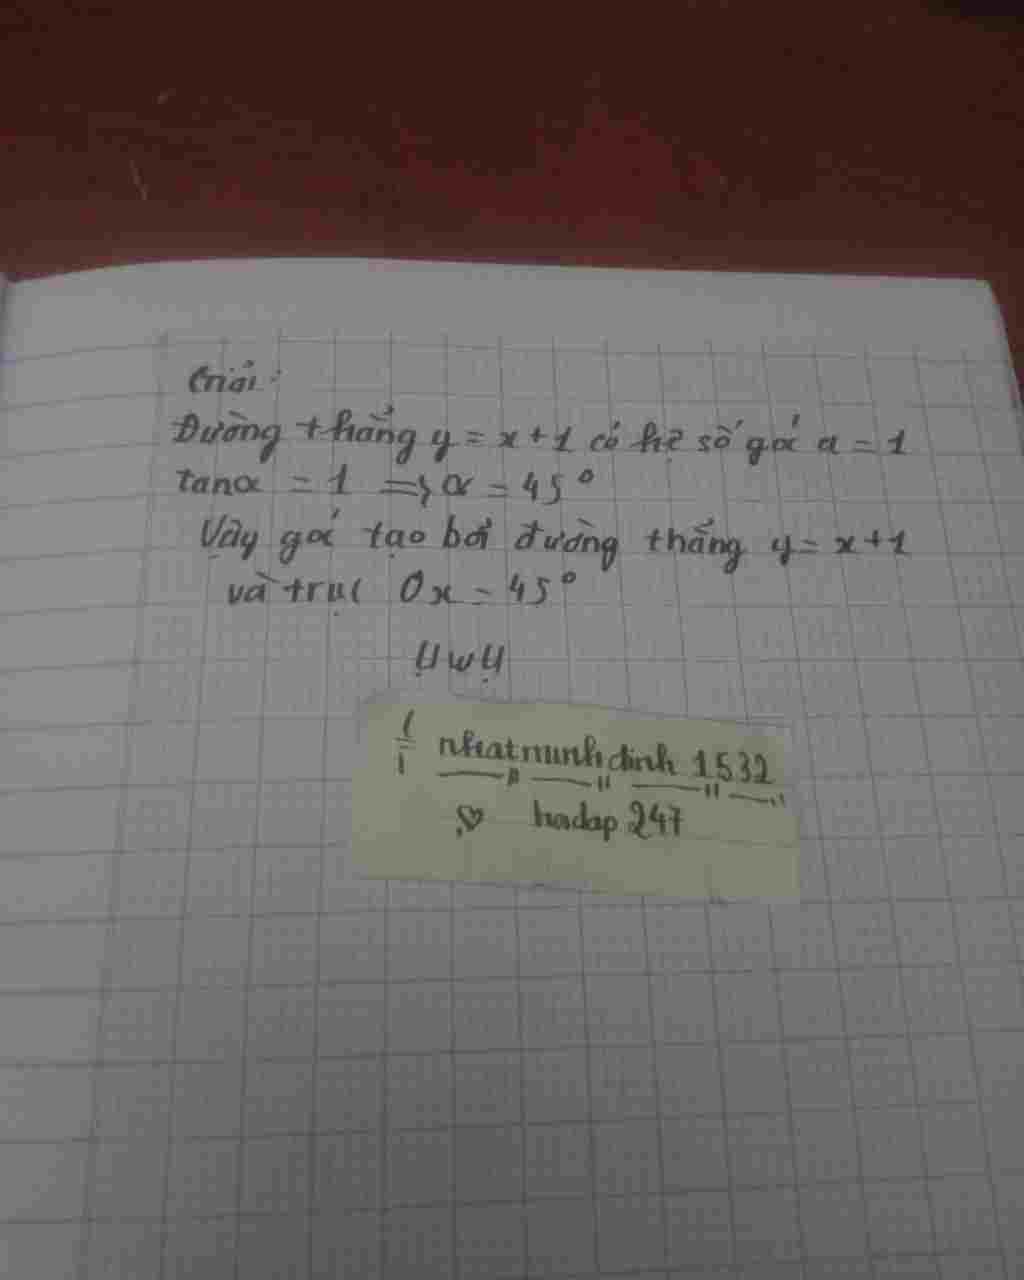 Giải:
Đường thẳng y = x + 1 có hệ số góc a = 1
tanα = 1 => α = 45°
Vậy góc tạo bởi đường thẳng y = x + 1
và trục Ox = 45°
ỤwỤ
nhatminhdinh 1532
hoidap 247